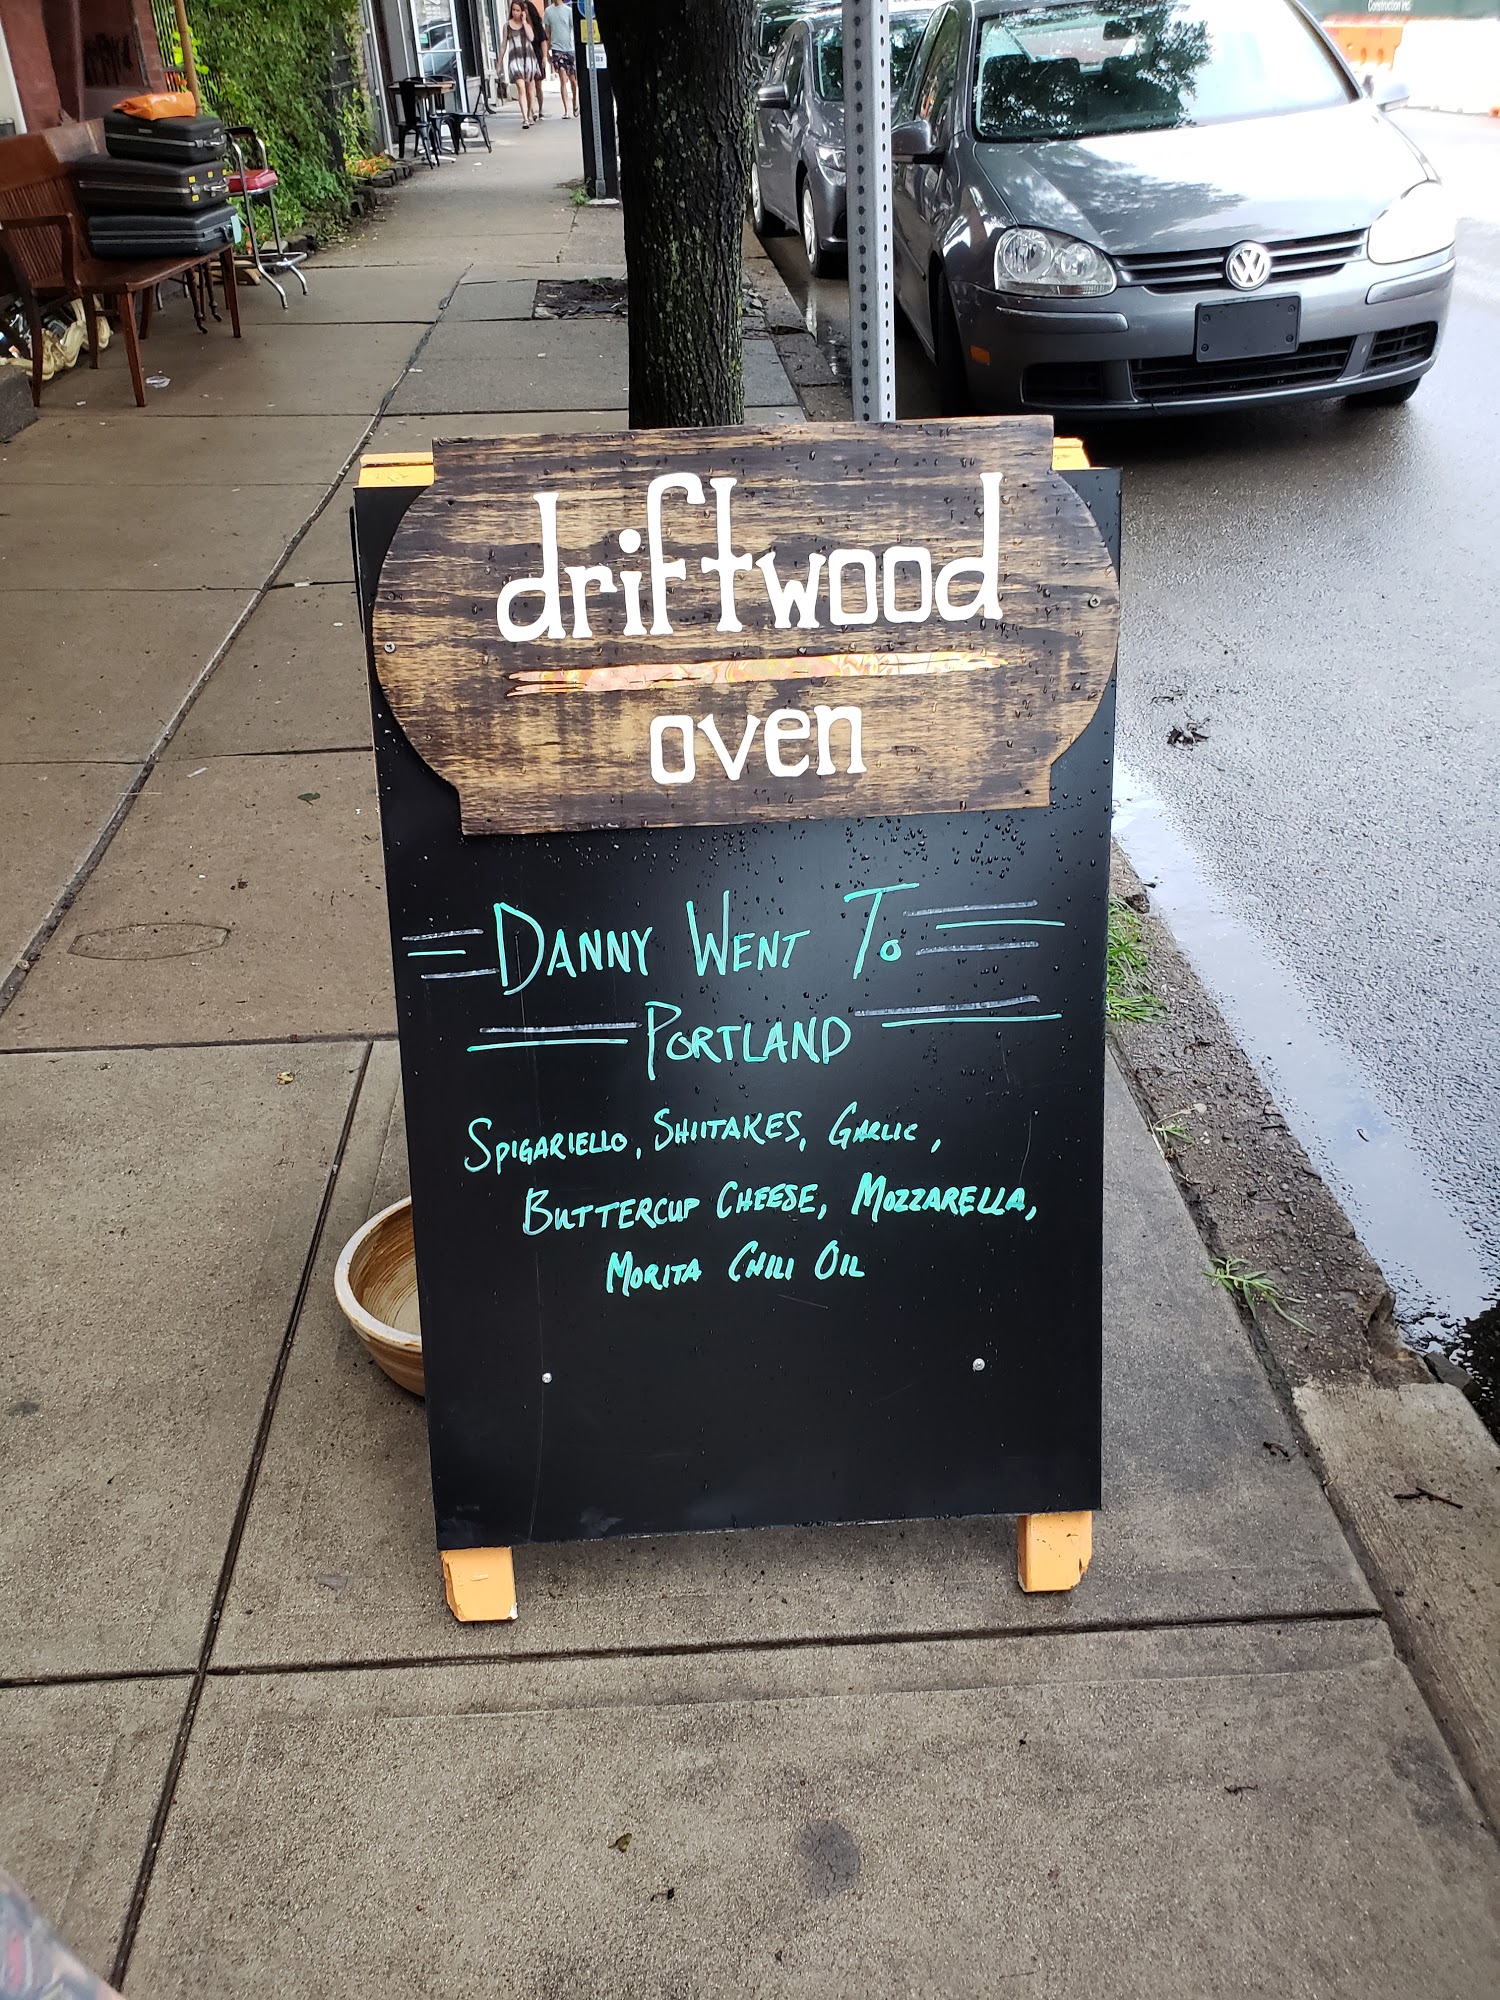 driftwood
oven
DANNY WENT TO
PORTLAND
SPIGARIELLO, SHIITAKES, GARLIC,
BUTTERCUP CHEESE, MOZZARELLA,
MORITA CHILI OIL
Construction Inc